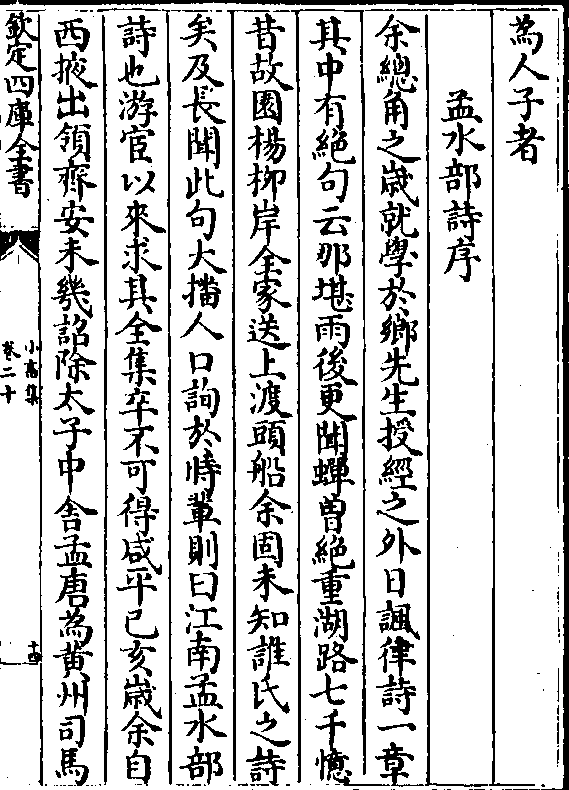 為人子者
孟水部詩序
余總角之歲就學於鄉先生授經之外日諷律詩一章
其中有絶句云那堪雨後更聞蟬曽絶重湖路七千憶
昔故園楊栁岸全家送上渡頭船余固未知誰氏之詩
矣及長聞此句大播人口詢於時輩則曰江南孟水部
詩也游宦以來求其全集卒不可得咸平己亥歲余自
西掖出領齊安未幾詔除太子中舎孟唐為黄州司馬
欽定四庫全書
小畜集
卷二十
十四